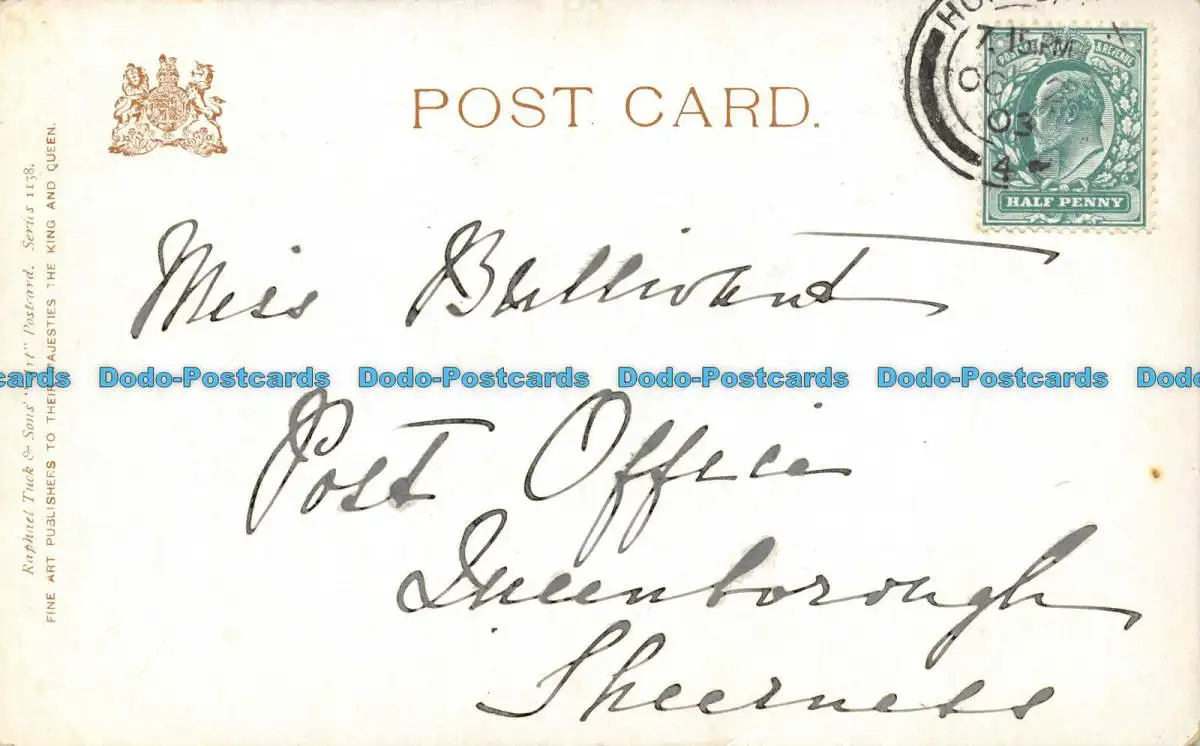 POST CARD.
POSTAGE & REVENUE
7.15 PM
OC
03
4
HALF PENNY
Miss Bullivant
Dodo-Postcards Dodo-Postcards Dodo-Postcards Dodo-Postcards
Post Office
Queenborough
Sheerness
Raphael Tuck & Sons' "Art" Postcard. Series 1138.
FINE ART PUBLISHERS TO THEIR MAJESTIES THE KING AND QUEEN.